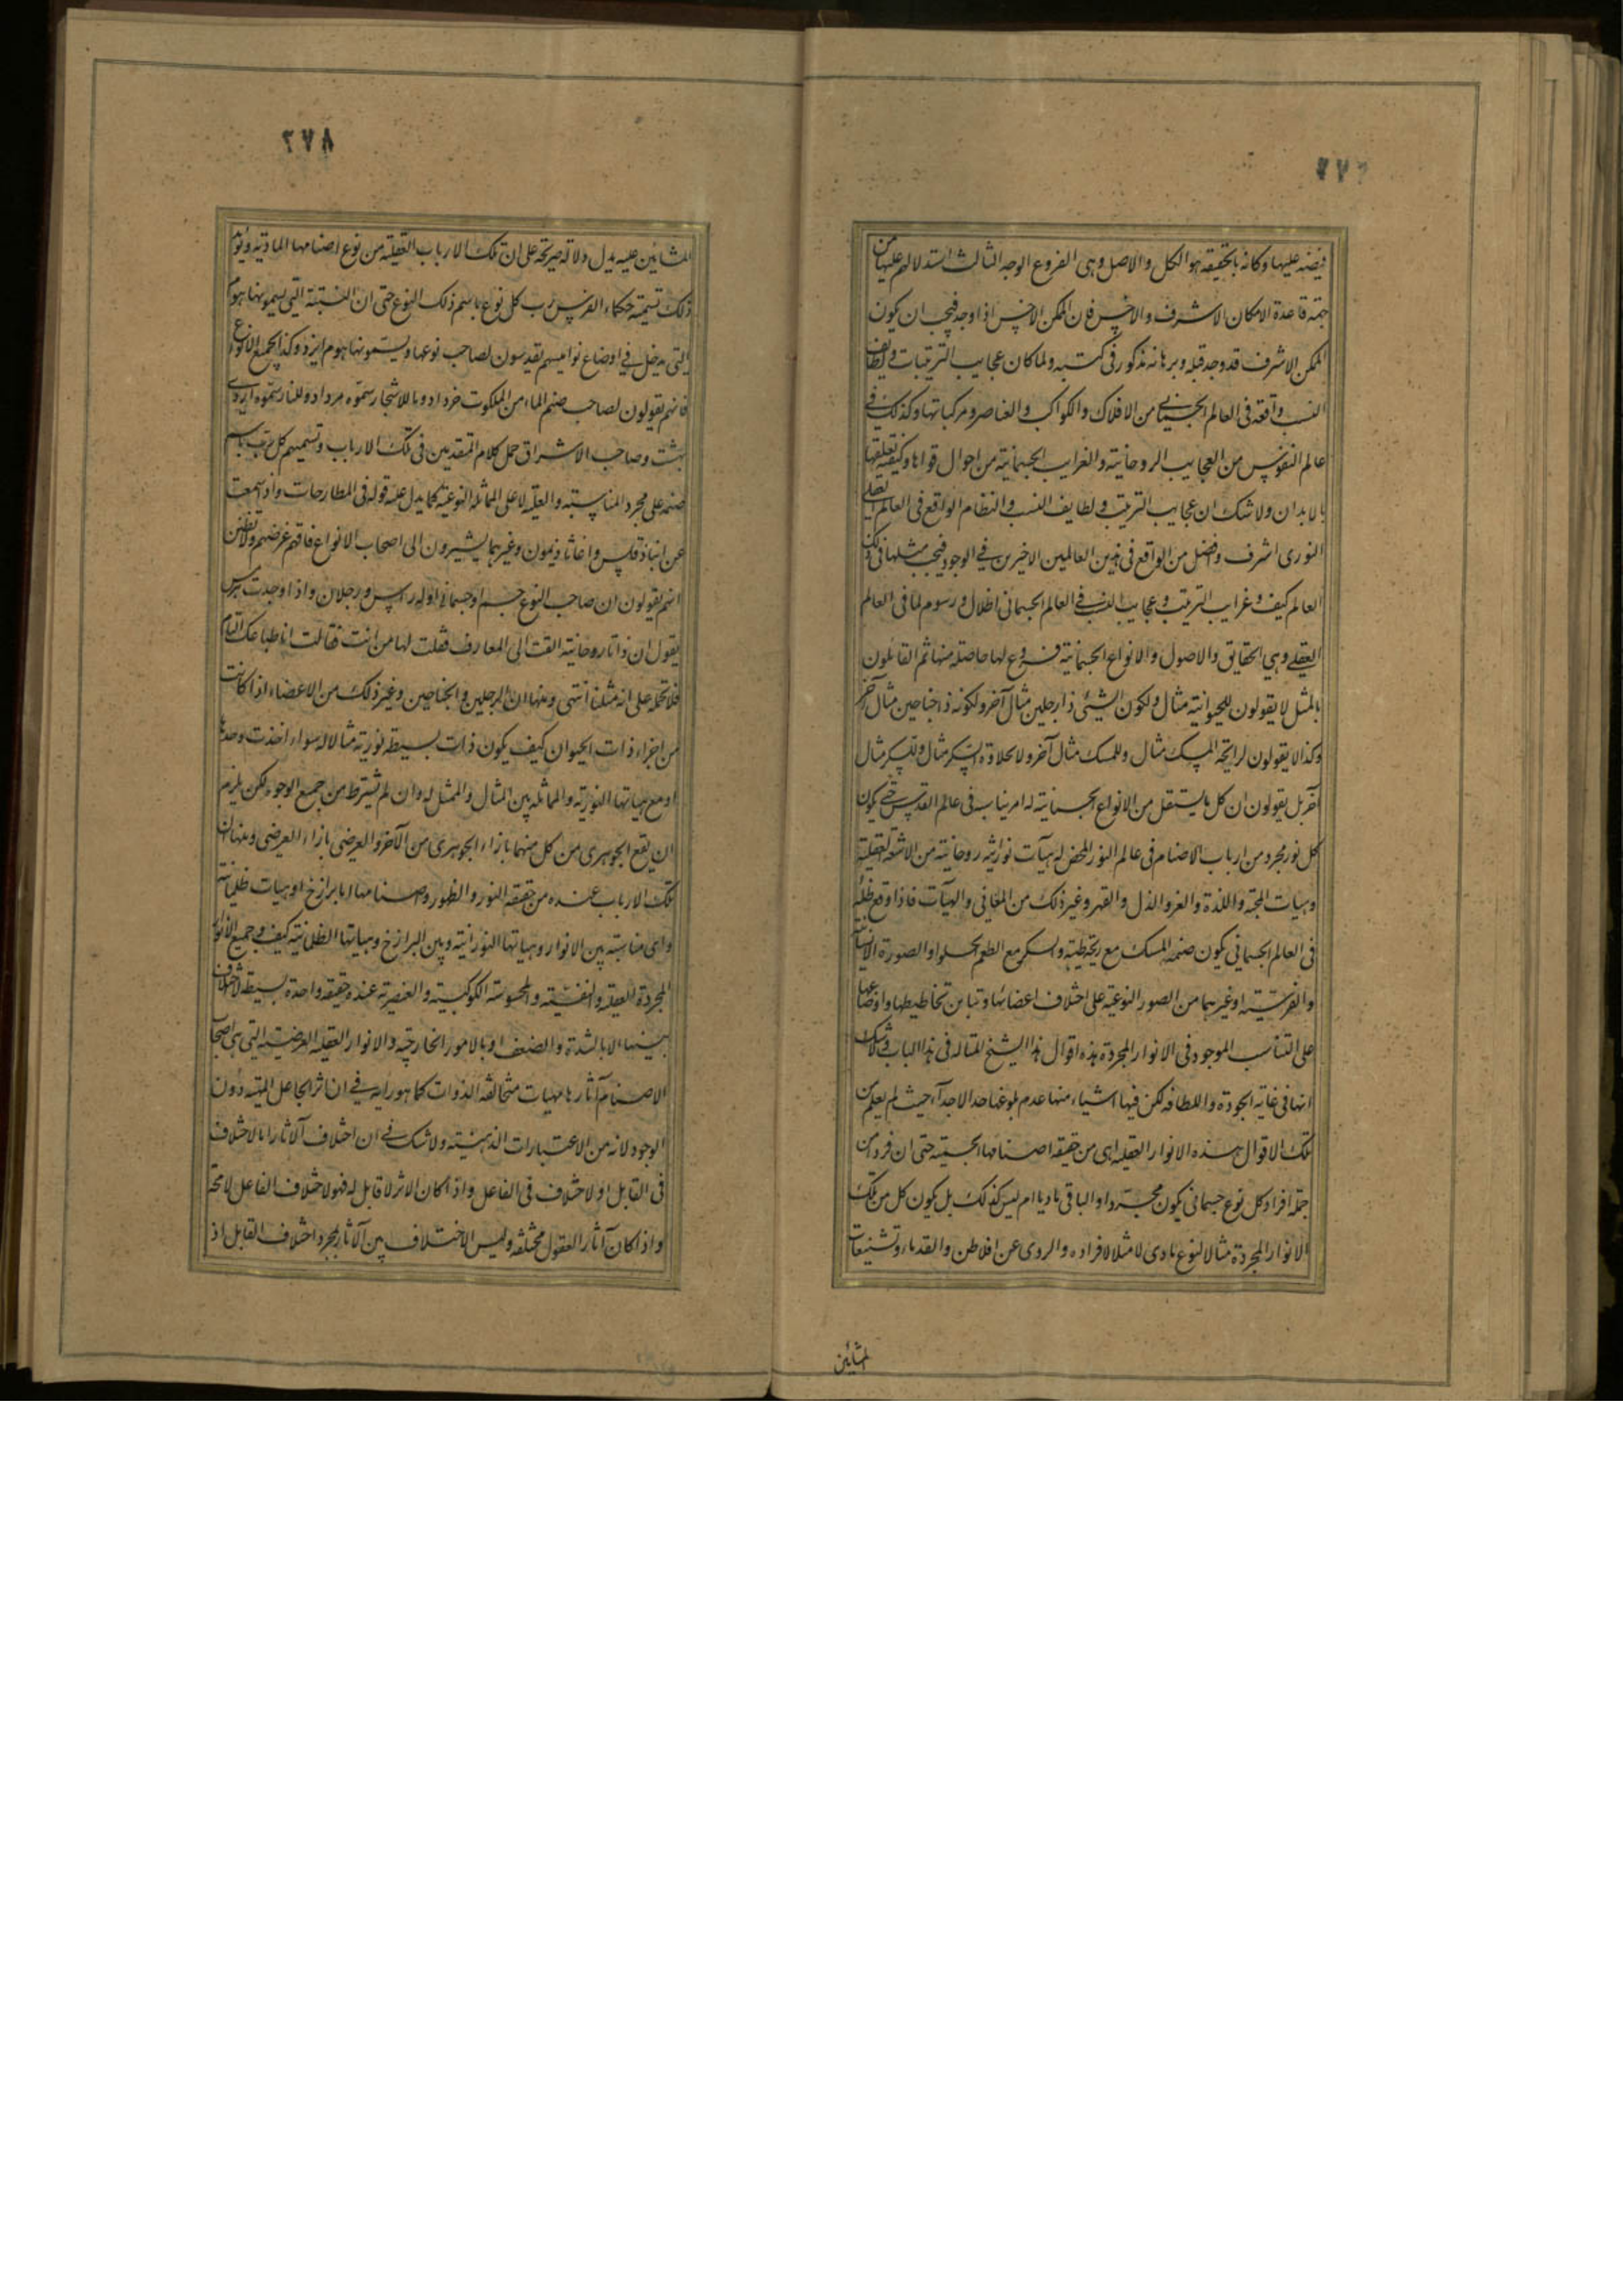 ٢٧٧
فيضه عليها وكانه بالحقيقة هو الكل والاصل وهى الفروع الوجه الثالث استدلالهم عليها من
جهة قاعدة الامكان الاشرف والاخس فان الممكن الاخس اذا وجد فيجب ان يكون
الممكن الاشرف قد وجد قبله وبرهانه مذكور فى كتبه ولما كان عجايب الترتيبات ولطايف
النسب واقعة فى العالم الجسمانى من الافلاك والكواكب والعناصر ومركباتها وكذلك فى
عالم النفوس من العجايب الروحانية والغرايب الجسمانية من احوال قواها وكيفية تعلقها
بالابدان ولا شك ان عجايب الترتيب ولطايف النسب والنظام الواقع فى العالم العقلى
النورى اشرف وافضل من الواقع فى هذين العالمين الاخيرين فى الوجود فيجب مثلها فى ذلك
العالم كيف وغرايب الترتيب وعجايب النسب فى العالم الجسمانى اظلال ورسوم لما فى العالم
العقلى وهى الحقايق والاصول والانواع الجسمانية فروع لها حاصلة منها ثم القائلون
بالمثل لا يقولون للحيوانية مثال ولكون الشيئ ذا رجلين مثال آخر ولكونه ذا جناحين مثال آخر
وكذا لا يقولون لرايحة المسك مثال وللمسك مثال آخر ولا لحلاوة السكر مثال وللسكر مثال
آخر بل يقولون ان كل ما يستقل من الانواع الجسمانية له امر يناسبه فى عالم القدس حتى يكون
كل نور مجرد من ارباب الاصنام فى عالم النور المحض له هيآت نورانية روحانية من الاشعة العقلية
وهيات المحبة واللذة والعز والذل والقهر وغير ذلك من المعانى والهيآت فاذا وقع ظله
فى العالم الجسمانى يكون صنمه المسك مع ريحه الطيبة والسكر مع الطعم الحلو او الصورة الانسانية
والفرسية او غيرهما من الصور النوعية على اختلاف اعضائها وتباين تخاطيطها واوضاعها
على التناسب الموجود فى الانوار المجردة هذه اقوال هذا الشيخ المتاله فى هذا الباب ولا شك
انها فى غاية الجودة واللطافة لكن فيها اشياء منها عدم بلوغها حد الاجداء حيث لم يعلم من
تلك الاقوال هذه الانوار العقلية اهى من حقيقة اصنامها الحسية حتى ان فردا من
جملة افراد كل نوع جسمانى يكون مجردا والباقى ماديا ام ليس كذلك بل يكون كل من تلك
الانوار المجردة مثالا لنوع مادى لا مثلا لافراده والروى عن افلاطن والقدماء وتشنيعات
المشائين
٢٧٨
المشائين عليه يدل دلالة صريحة على ان تلك الارباب العقلية من نوع اصنامها المادية ويؤيد
ذلك تسمية حكماء الفرس رب كل نوع باسم ذلك النوع حتى ان النبتة التى يسمونها هوم
التى يدخل فى اوضاع نواميسهم يقدسون لصاحب نوعها ويسمونها هوم ايزد وكذا لجميع الانواع
فانهم يقولون لصاحب صنم الماء من الملكوت خرداد وما للاشجار سموه مرداد وللنار سموه ارديـ
بهشت وصاحب الاشراق حمل كلام المتقدمين فى تلك الارباب وتسميتهم كل رب باسم
صنمه على مجرد المناسبة والعلية لا على المماثلة النوعية كما يدل عليه قوله فى المطارحات واذا سمعت
عن انباذقلس واغاثاذيمون وغيرهما يشيرون الى اصحاب الانواع فافهم غرضهم ولا تظنن
انهم يقولون ان صاحب النوع جسم او جسمانى او له راس ورجلان واذا وجدت هرمس
يقول ان ذاتا روحانية القت الى المعارف فقلت لها من انت فقالت انا طباعك التام
فلا تحمله على انه مثلنا انتهى ومنها ان الرجلين والجناحين وغير ذلك من الاعضاء اذا كانت
من اجزاء ذات الحيوان كيف يكون ذات بسيطة نورية مثالا له سواء اخذت وحدها
او مع هياتها النورية والمماثلة بين المثال والممثل له وان لم يشترط من جميع الوجوه لكن يلزم
ان يقع الجوهرى من كل منهما بازاء الجوهرى من الآخر والعرضى بازاء العرضى ومنها ان
تلك الارباب عنده من حقيقة النور والظهور واصنامها اما برازخ او هيات ظلمانية
واى مناسبة بين الانوار وهياتها النورانية وبين البرازخ وهياتها الظلمانية كيف وجميع الانوار
المجردة العقلية والنفسية والمحسوسة الكوكبية والعنصرية عنده حقيقة واحدة بسيطة لا اختلاف
بينها الا بالشدة والضعف او بالامور الخارجية والانوار العقلية العرضية التى هى اصحاب
الاصنام آثارها مهيات متخالفة الذوات كما هو رايه فى ان اثر الجاعل المهية دون
الوجود لانه من الاعتبارات الذهنية ولا شك فى ان اختلاف الآثار اما لاختلاف
فى القابل او لاختلاف فى الفاعل واذا كان الاثر لا قابل له فهو لاختلاف الفاعل لا محة
واذا كان آثار العقول مختلفة وليس الاختلاف بين الآثار بمجرد اختلاف القابل اذ